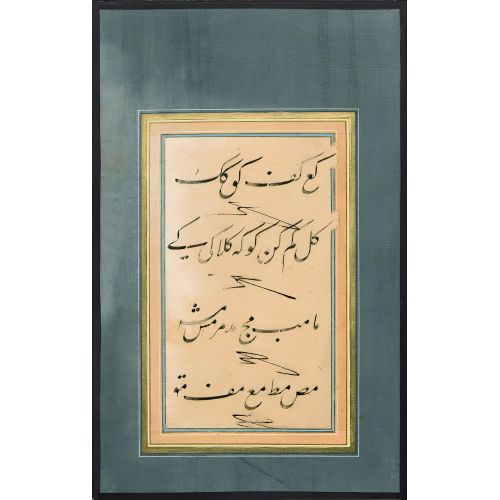 کع کف کو کک
کل کم کن کو که کلا کی کے
ما مب مج مد مر مس مش
مص مط مع مف مق